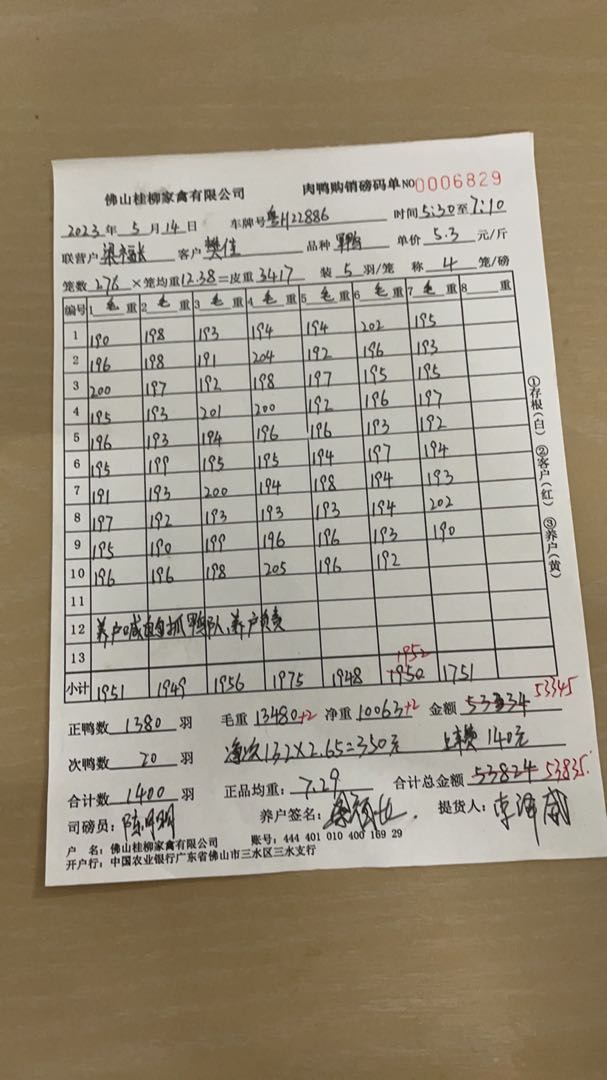 佛山桂柳家禽有限公司 肉鸭购销磅码单 NO 0006829
2023年 5月 14日 车牌号 粤H22886 时间 5:30 至 7:10
联营户 梁福长 客户 樊佳 品种 单价 5.3 元/斤
笼数 276 ×笼均重 12.38=皮重 3417 装 5 羽/笼 称 4 笼/磅
编号 1 毛 重 2 毛 重 3 毛 重 4 毛 重 5 毛 重 6 毛 重 7 毛 重 8 重
1 190 198 193 194 194 202 195
2 196 198 191 204 192 196 193
3 200 197 192 198 197 195 195
4 195 193 201 200 192 196 197
5 196 193 194 196 196 193 192
6 195 199 195 195 194 197 194
7 191 193 200 194 198 194 193
8 197 192 193 193 193 194 202
9 195 190 199 196 196 193 190
10 196 196 198 205 196 192
11
12 养户喊自抓鸭队、养户负责
13
1952
小计 1951 1949 1956 1975 1948 1950 1751
正鸭数 1380 羽 毛重 13480+2 净重 10063+2 金额 53334 53345
次鸭数 20 羽 132×2.65=350元 140元
合计数 1400 羽 正品均重: 7.29 合计总金额 53824 53835
司磅员: 养户签名: 提货人:
户 名: 佛山桂柳家禽有限公司 账号: 444 401 010 400 169 29
开户行: 中国农业银行广东省佛山市三水区三水支行
①存根(白) ②客户(红) ③养户(黄)